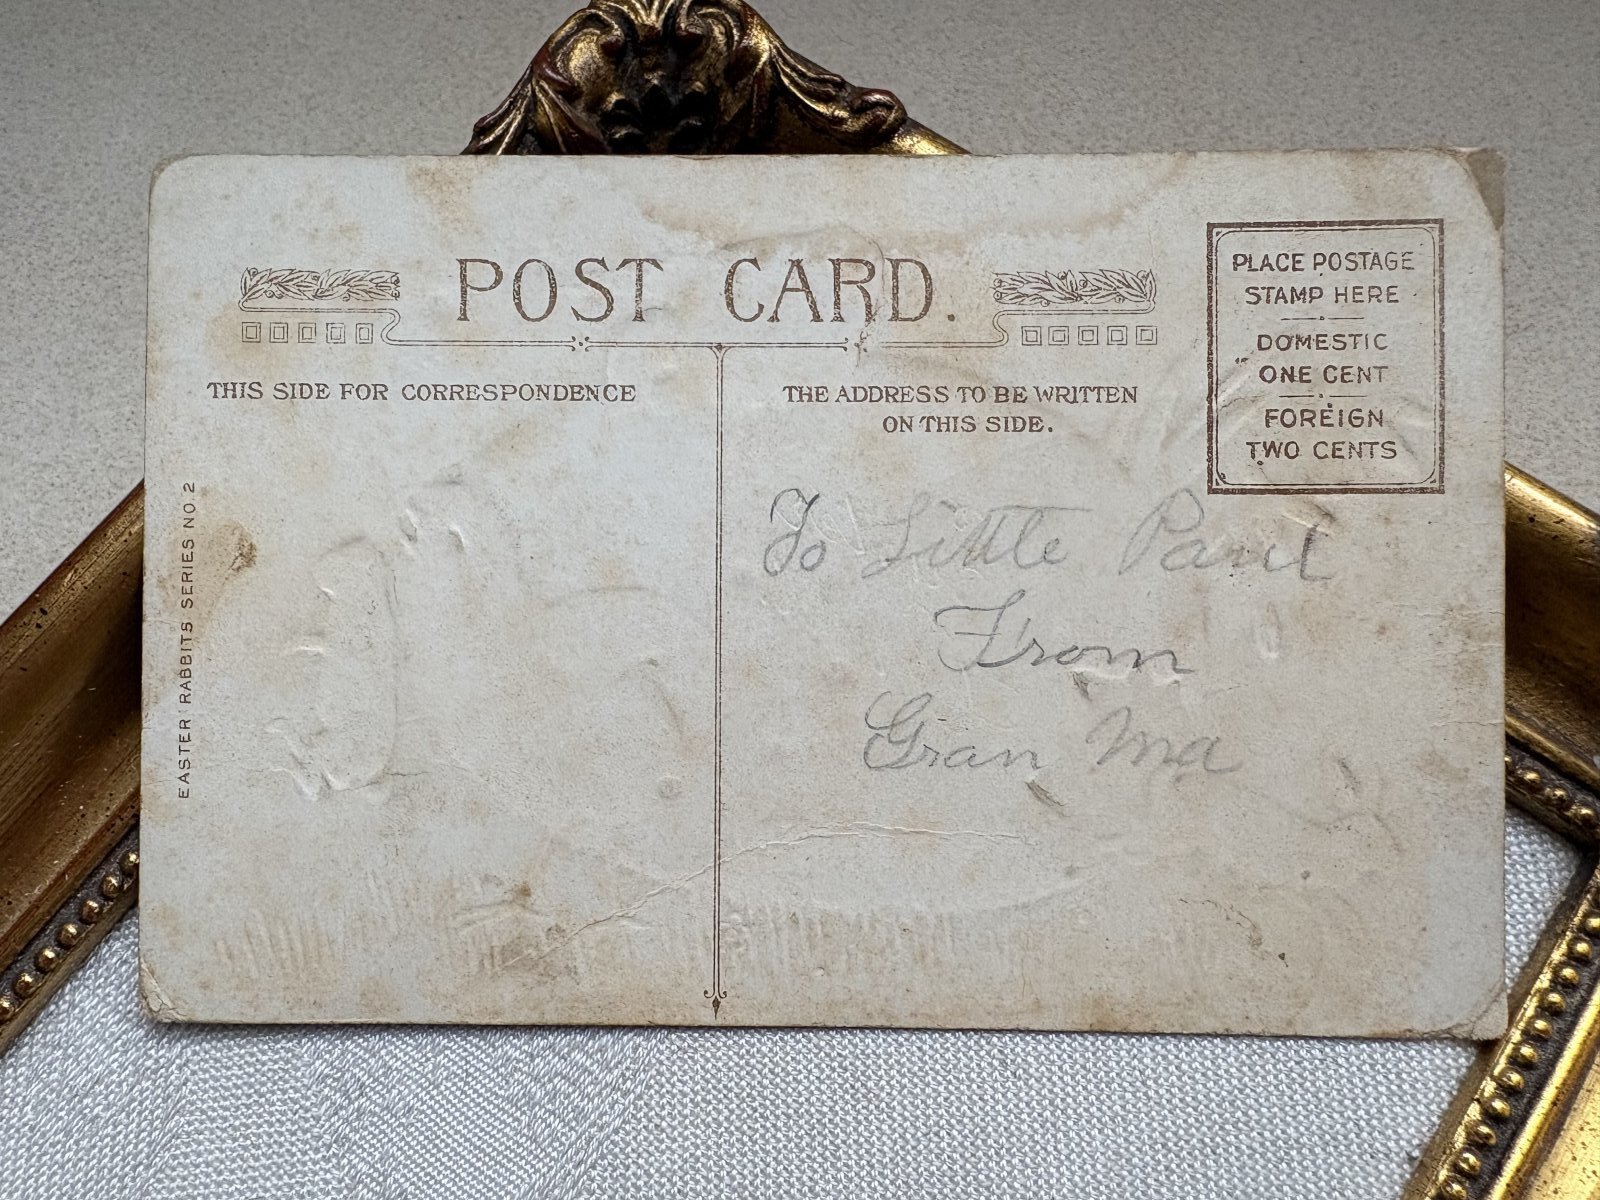 POST CARD.
THIS SIDE FOR CORRESPONDENCE
THE ADDRESS TO BE WRITTEN
ON THIS SIDE.
PLACE POSTAGE
STAMP HERE
DOMESTIC
ONE CENT
FOREIGN
TWO CENTS
EASTER RABBITS SERIES NO. 2
To Little Paul
From
Gran Ma